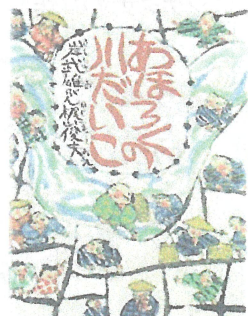 あほろくの
川だいこ
岸武雄ぶん 梶山俊夫え